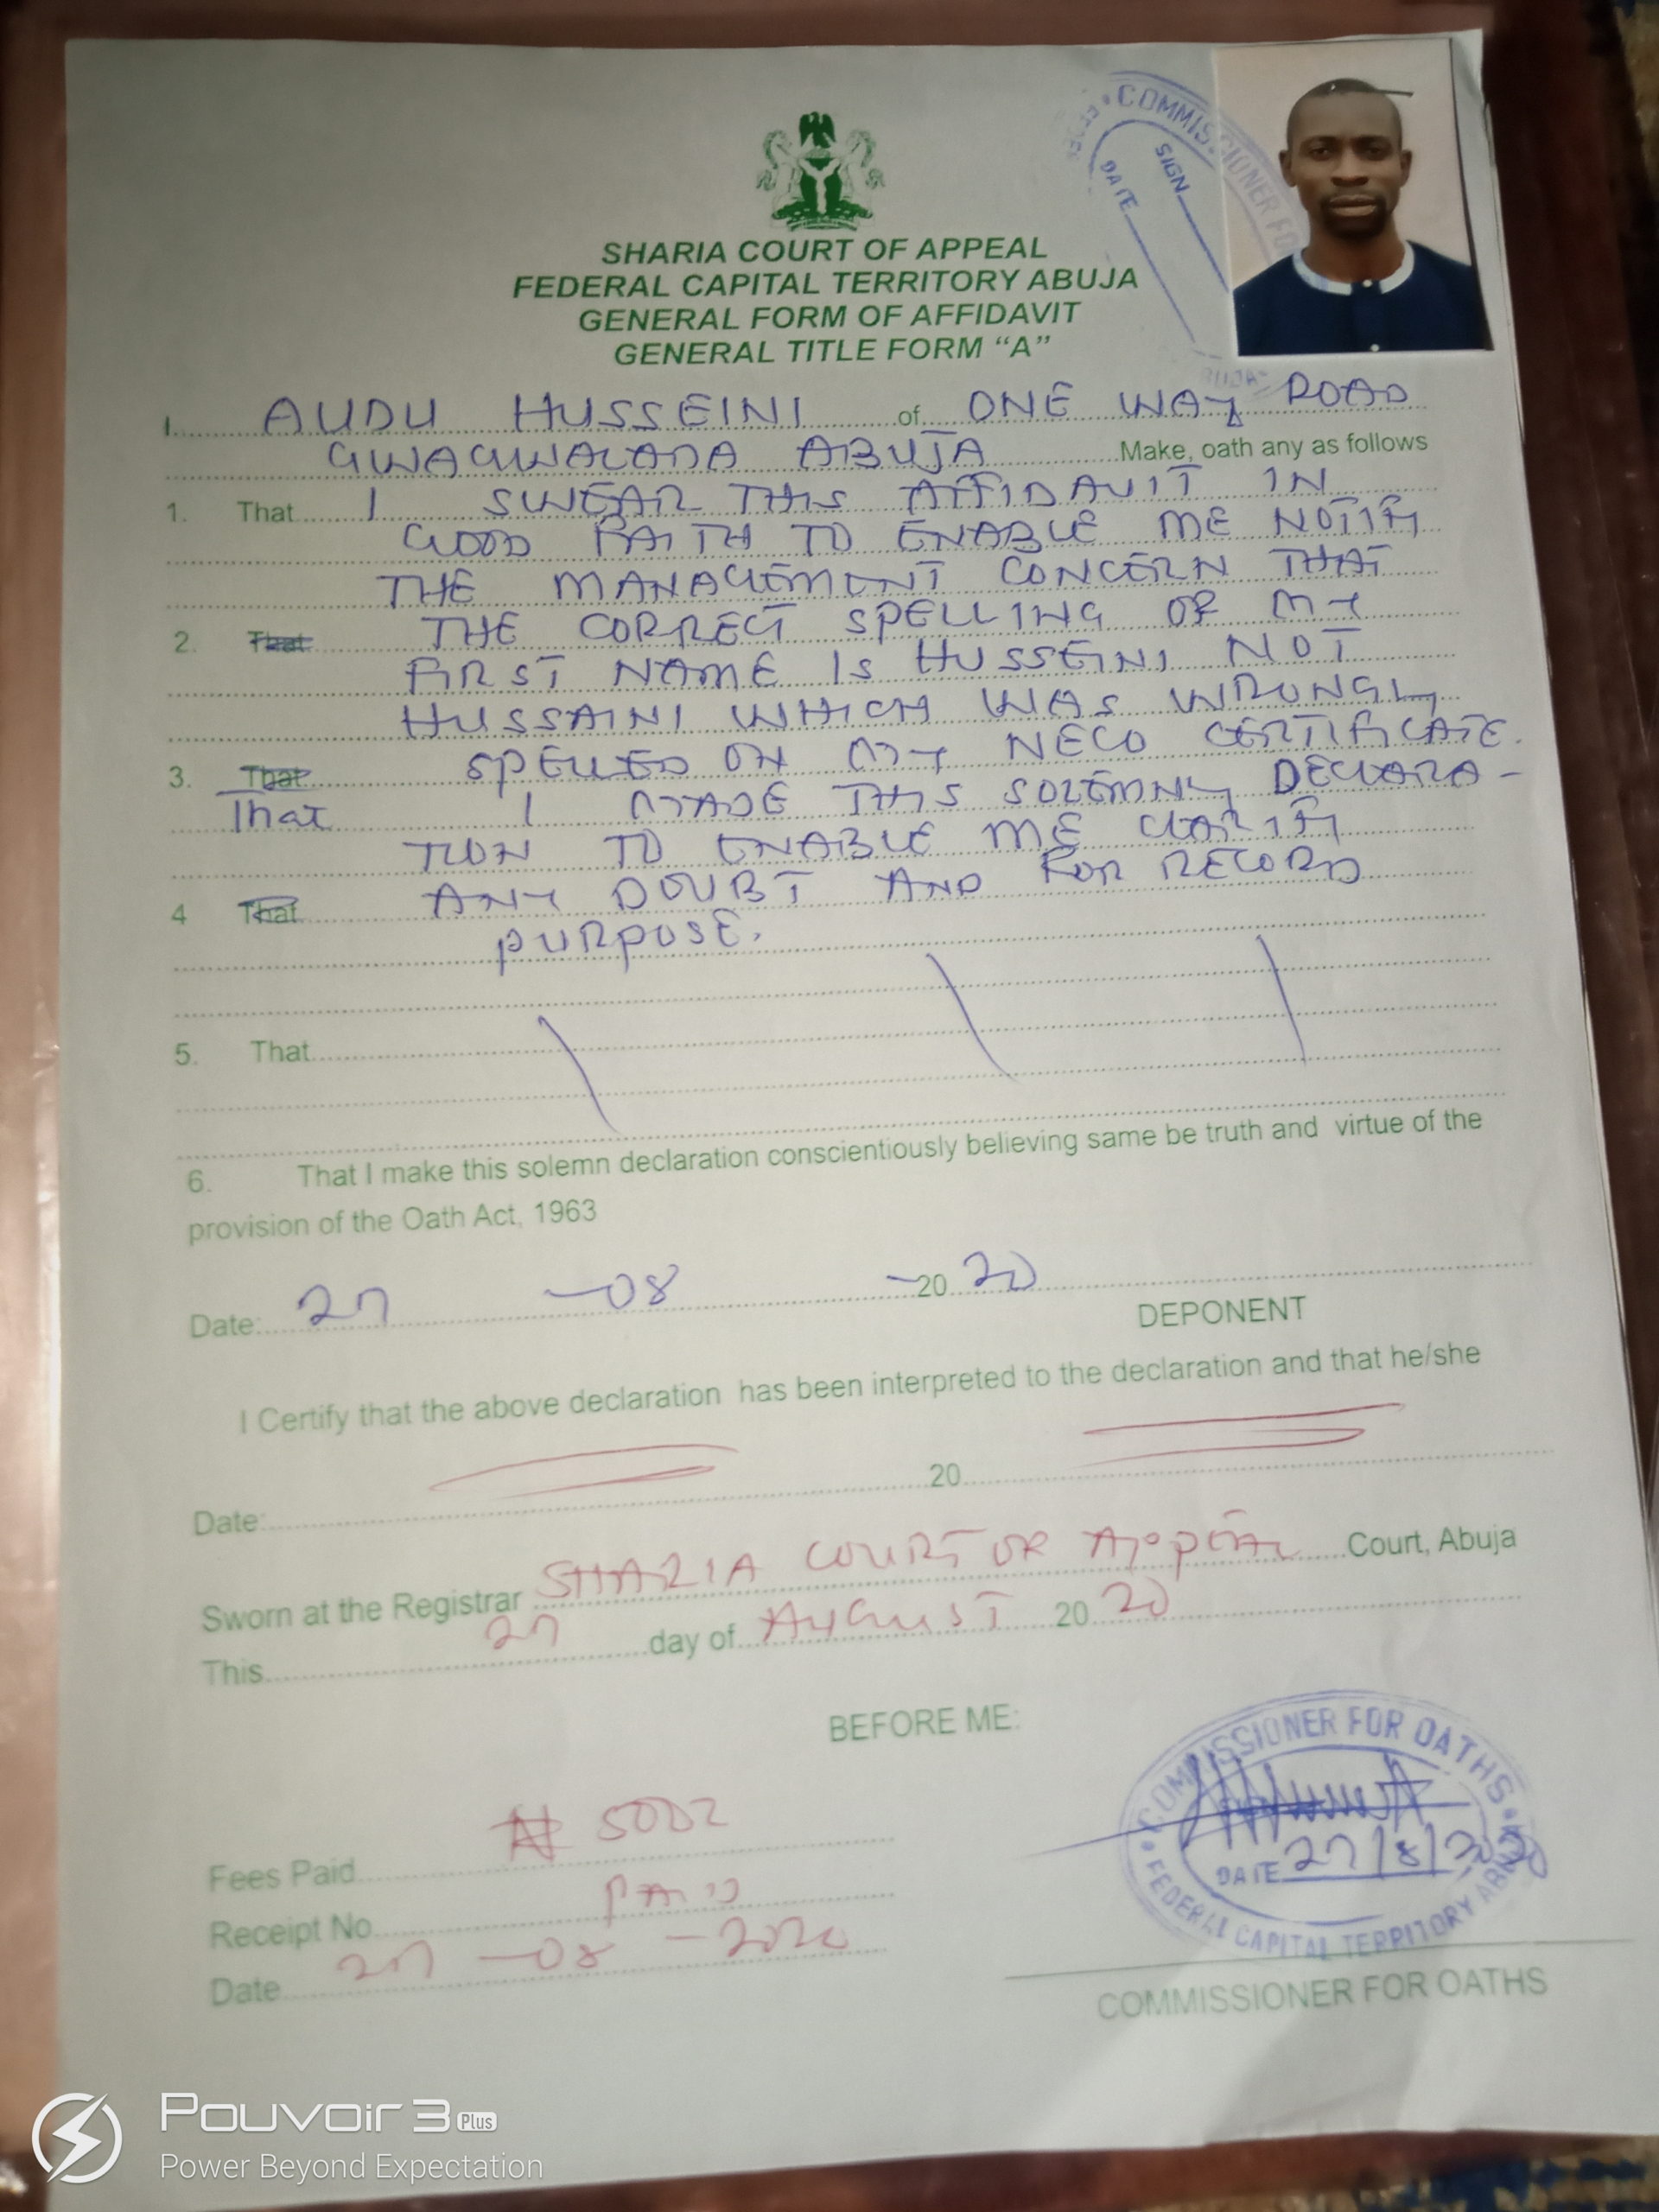 COMMISSIONER FO
SIGN
DATE
SHARIA COURT OF APPEAL
FEDERAL CAPITAL TERRITORY ABUJA
GENERAL FORM OF AFFIDAVIT
GENERAL TITLE FORM “A”
I. AUDU HUSSEINI of ONE WAY ROAD
GWAGWALADA ABUJA Make, oath any as follows
1. That I SWEAR THIS AFFIDAVIT IN
GOOD FAITH TO ENABLE ME NOTIFY
THE MANAGEMENT CONCERN THAT
2. That THE CORRECT SPELLING OF MY
FIRST NAME IS HUSSEINI NOT
HUSSAINI WHICH WAS WRONGLY
3. That SPELLED ON MY NECO CERTIFICATE.
That I MADE THIS SOLEMNLY DECLARA-
TION TO ENABLE ME CLARIFY
4 That ANY DOUBT AND FOR RECORD
PURPOSE.
5. That
6. That I make this solemn declaration conscientiously believing same be truth and virtue of the
provision of the Oath Act, 1963
Date: 27 -08 -20 20
DEPONENT
I Certify that the above declaration has been interpreted to the declaration and that he/she
Date: 20
Sworn at the Registrar SHARIA COURT OF APPEAL Court, Abuja
This 27 day of AUGUST 20 20
BEFORE ME:
COMMISSIONER FOR OATHS
DATE 27/8/2020
FEDERAL CAPITAL TERRITORY ABUJA
Fees Paid ₦
Receipt No PAID
Date 27-08-2020
COMMISSIONER FOR OATHS
POUVOIR 3 Plus
Power Beyond Expectation